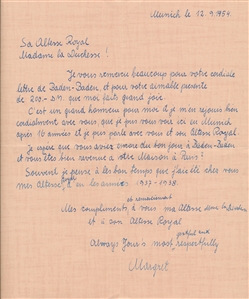 Munich le 12.9.1954
Sa Altesse Royal
Madame la Duchesse !
Je vous remercie beaucoup pour votre cordiale
lettre de Baden-Baden et pour votre aimable présente
de 200.- D.M. que moi faits grand joie.
C'est un grand honneur pour moi et je men rejouis bien
cordialement avec vous que je puis vous voir ici en Munich
après 16 années et je puis parle avec vous et son Altesse Royal.
Je espère que vous aviez encore du bon jour à Baden-Baden
et vous êtes bien revenue a votre Maison à Paris?
Souvent je pense à les bon temps que j'ai été chez vous
mes Altesse Royal en les années 1937-1938.
et remerciement
Mes compliments à vous ma Altesse
et à son Altesse Royal
grateful and
Always Your's most respectfully
Margret